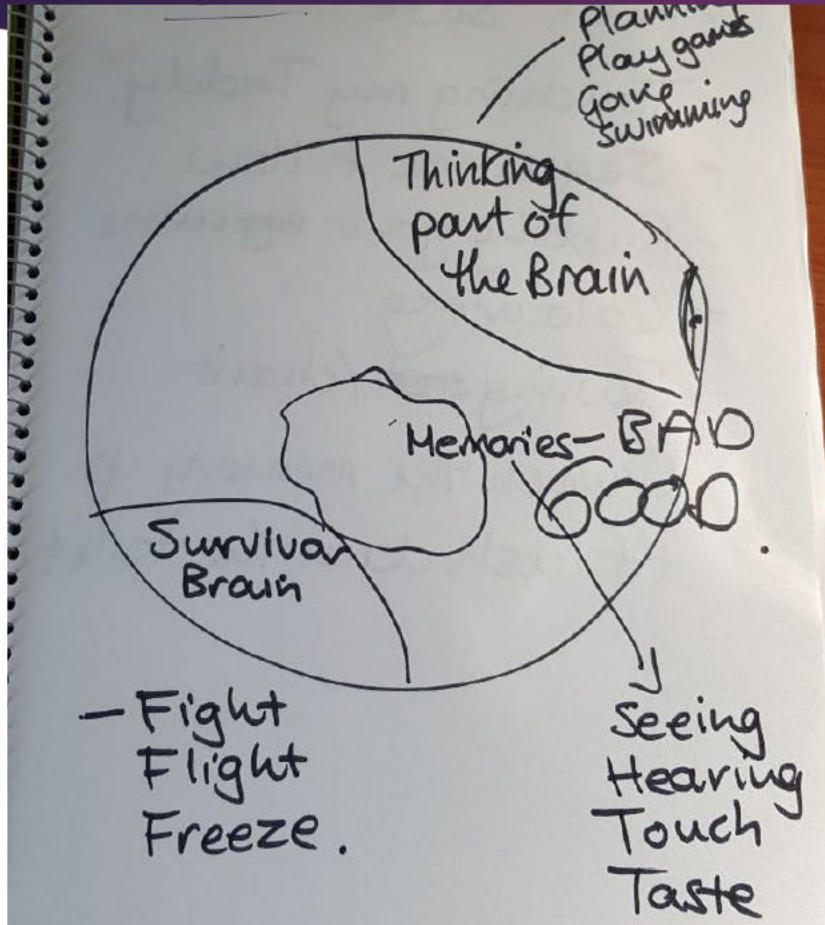 Planning
Play games
Gave
swimming
Thinking
part of
the Brain
Memories- BAD
GOOD
Survival
Brain
- Fight
Flight
Freeze.
Seeing
Hearing
Touch
Taste